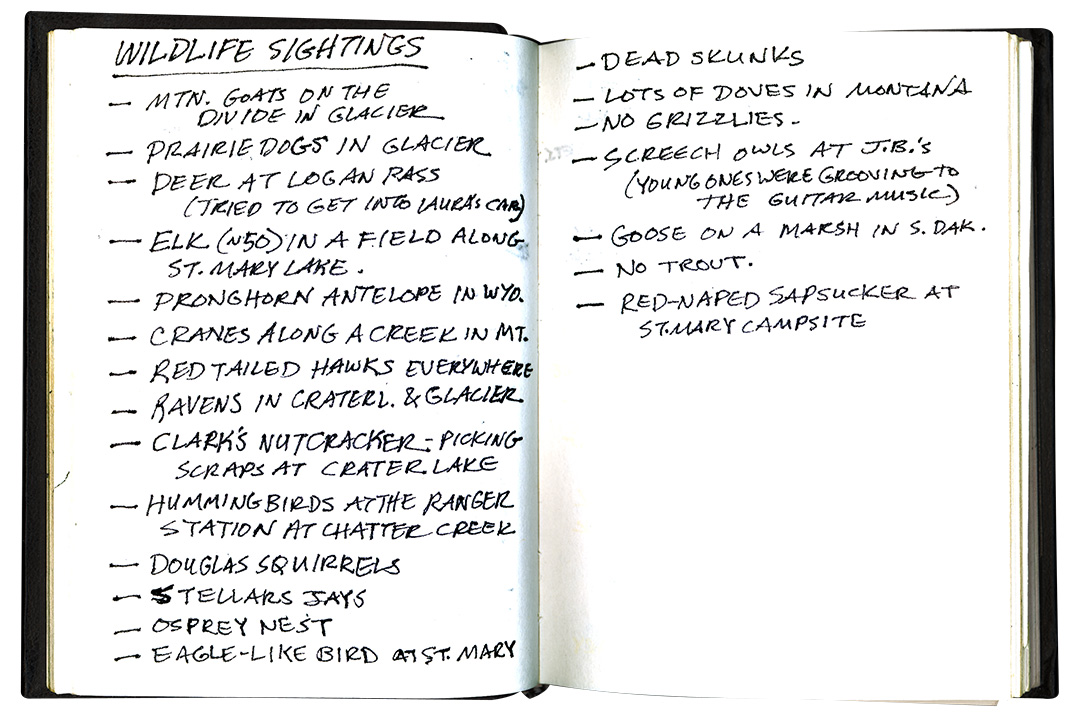 WILDLIFE SIGHTINGS
— MTN. GOATS ON THE
DIVIDE IN GLACIER
— PRAIRIE DOGS IN GLACIER
— DEER AT LOGAN PASS
(TRIED TO GET INTO LAURA'S CAR)
— ELK (~50) IN A FIELD ALONG
ST. MARY LAKE.
— PRONGHORN ANTELOPE IN WYO.
— CRANES ALONG A CREEK IN MT.
— RED TAILED HAWKS EVERYWHERE
— RAVENS IN CRATER L. & GLACIER
— CLARK'S NUTCRACKER - PICKING
SCRAPS AT CRATER LAKE
— HUMMINGBIRDS AT THE RANGER
STATION AT CHATTER CREEK
— DOUGLAS SQUIRRELS
— STELLARS JAYS
— OSPREY NEST
— EAGLE-LIKE BIRD AT ST. MARY
— DEAD SKUNKS
— LOTS OF DOVES IN MONTANA
— NO GRIZZLIES.
— SCREECH OWLS AT J.B.'S
(YOUNG ONES WERE GROOVING TO
THE GUITAR MUSIC)
— GOOSE ON A MARSH IN S. DAK.
— NO TROUT.
— RED-NAPED SAPSUCKER AT
ST. MARY CAMPSITE